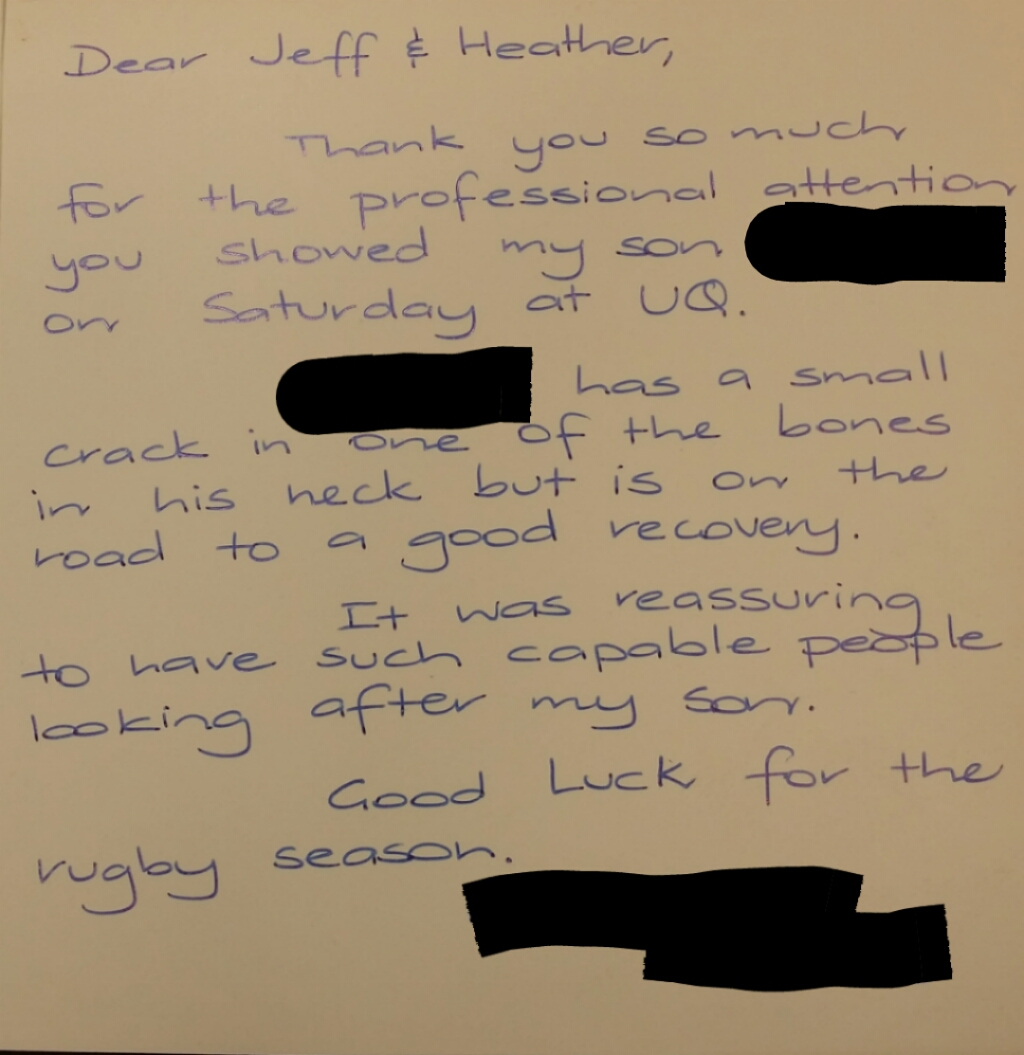 Dear Jeff & Heather,
Thank you so much
for the professional attention
you showed my son
on Saturday at UQ.
has a small
crack in one of the bones
in his neck but is on the
road to a good recovery.
It was reassuring
to have such capable people
looking after my son.
Good Luck for the
rugby season.